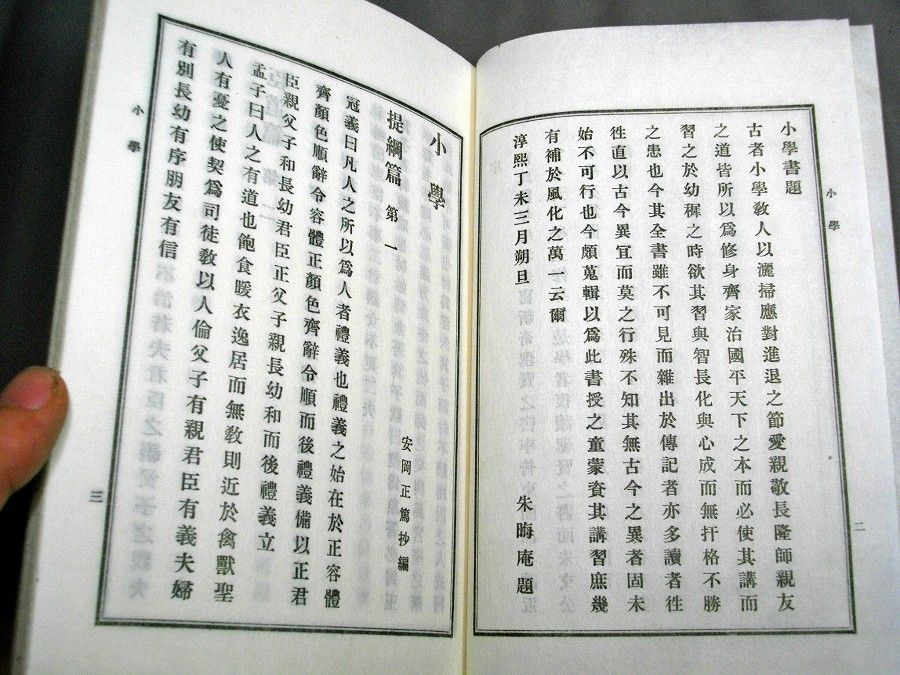 小學
二
小學書題
古者小學敎人以灑掃應對進退之節愛親敬長隆師親友
之道皆所以爲修身齊家治國平天下之本而必使其講而
習之於幼穉之時欲其習與智長化與心成而無扞格不勝
之患也今其全書雖不可見而雜出於傳記者亦多讀者徃
徃直以古今異冝而莫之行殊不知其無古今之異者固未
始不可行也今頗蒐輯以爲此書授之童蒙資其講習庶幾
有補於風化之萬一云爾
淳熙丁未三月朔旦 朱晦庵題
小學
提綱篇 第一
安岡正篤抄編
冠義曰凡人之所以爲人者禮義也禮義之始在於正容體
齊顏色順辭令容體正顏色齊辭令順而後禮義備以正君
臣親父子和長幼君臣正父子親長幼和而後禮義立
孟子曰人之有道也飽食暖衣逸居而無敎則近於禽獸聖
人有憂之使契爲司徒敎以人倫父子有親君臣有義夫婦
有別長幼有序朋友有信
小學
三